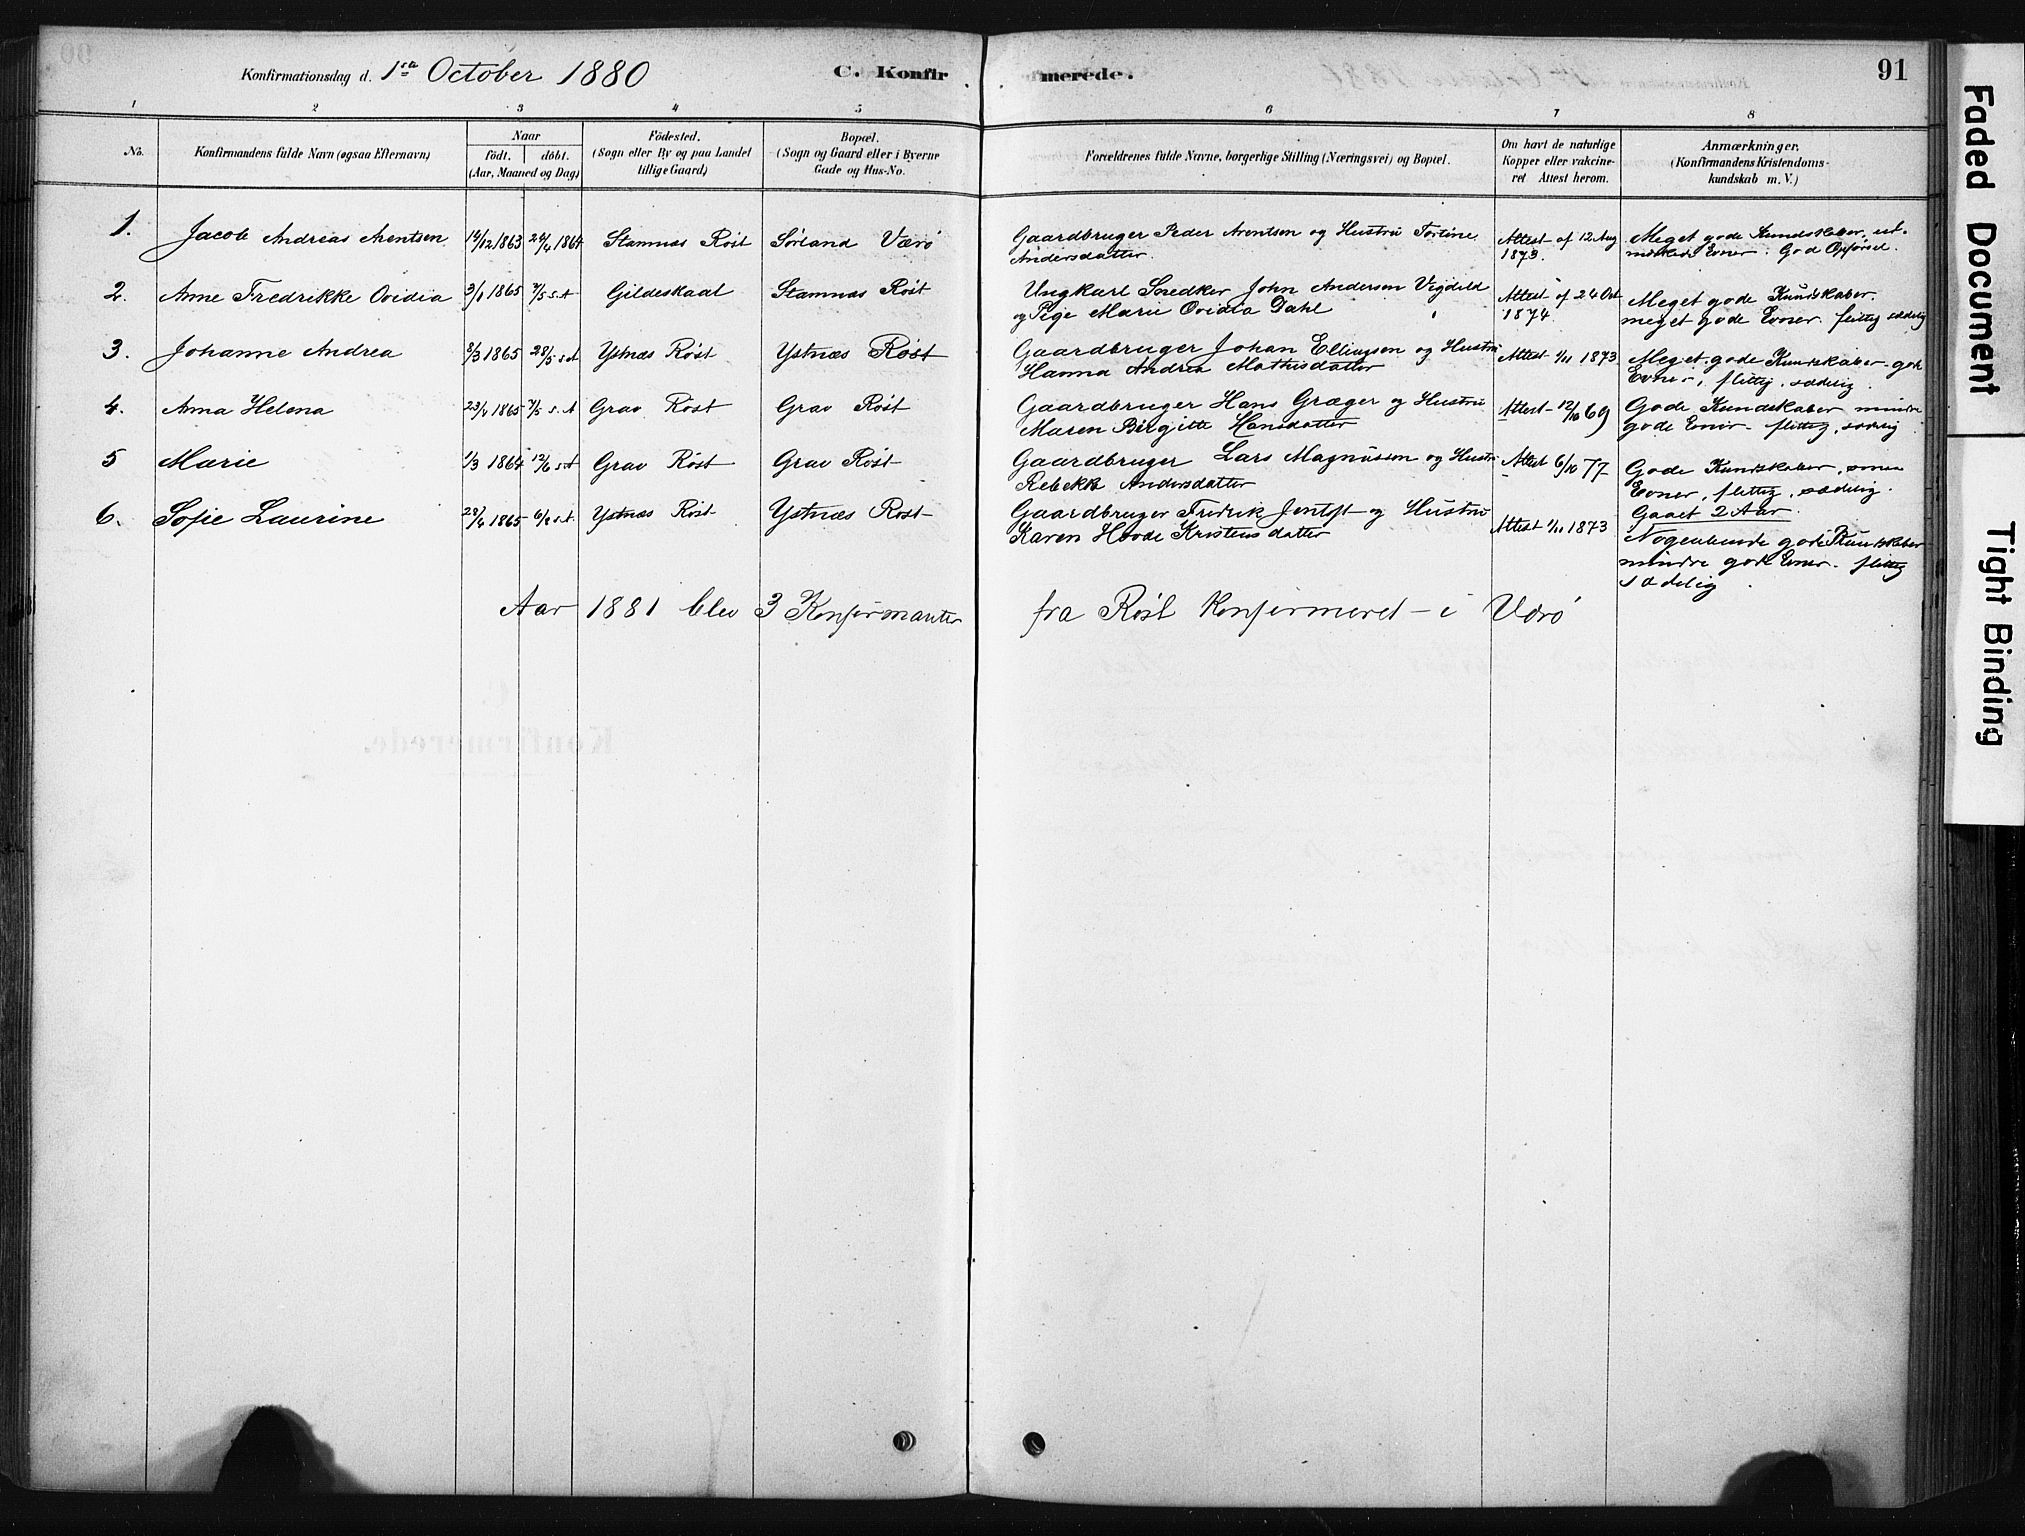 Konfirmationsdag d. 1ste October 1880 C. Konfirmerede. 91
1 2 3 4 5 6 7 8
No. Konfirmandens fulde Navn (ogsaa Efternavn) Naar födt. döbt. (Aar, Maaned og Dag) Födested. (Sogn eller By og paa Landet tillige Gaard) Bopæl. (Sogn og Gaard eller i Byerne Gade og Hus-No. Forældrenes fulde Navne, borgerlige Stilling (Næringsvei) og Bopæl. Om havt de naturlige Kopper eller vakcineret Attest herom. Anmærkninger. (Konfirmandens Kristendomskundskab m. V.)
1. Jacob Andreas Arentsen 14/12 1863 24/4 1864 Stamnas Röst Sörland Værö Gaardbruger Peder Arentsen og Hustru Tortine Attest af 12 Aug Meget gode Kundskaber, ud-
Andersdatter. 1873. mærkede Evner. God Opförsel.
2. Anne Fredrikke Ovidia 3/1 1865 7/5 s.A Gildeskaal Stamnas Röst Ungkarl Snedker John Andersen Attest af 24 Oct Meget gode Kundskaber.
og Pige Marie Ovidia Dahl 1874. meget gode Evner. flittig sædelig
3. Johanne Andrea 8/3 1865 28/5 s.A Ystnæs Röst Ystnæs Röst Gaardbruger Johan Ellingsen og Hustru Attest 1/11 1873 Meget gode Kundskaber. gode
Hanna Andrea Mathisdatter Evner, flittig, sædelig.
4. Anna Helena 23/4 1865 7/5 s.A Grav Röst Grav Röst Gaardbruger Hans Græger og Hustru Attest 12/10 69 Gode Kundskaber mindre
Maren Birgitte Hansdatter gode Evner. flittig, sædelig
5 Marie 1/3 1864 12/6 s.A Grav Röst Grav Röst Gaardbruger Lars Magnussen og Hustru Attest 6/10 77 Gode Kundskaber, smaa
Rebekka Andersdatter Evner, flittig, sædelig.
6. Sofie Laurine 28/4 1865 6/8 s.A. Ystnæs Röst Ystnæs Röst Gaardbruger Fredrik Jentoft og Hustru Attest 1/11 1873 Gaaet 2 Aar.
Karen Hovde Kristensdatter Nogenlunde gode Kundskaber
mindre gode Evner. flittig
sædelig.
Aar 1881 blev 3 Konfirmanter fra Röst Konfirmeret i Værö
Konfirmerede.
Faded Document
Tight Binding